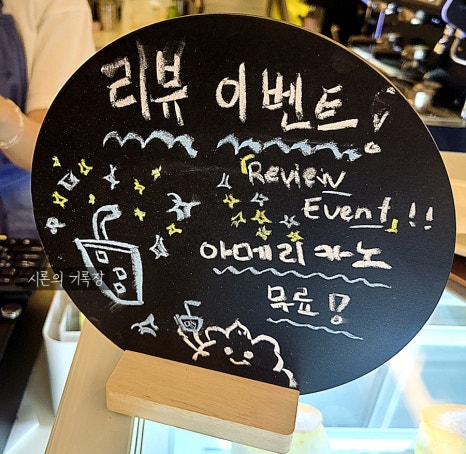 리뷰 이벤트!
「Review
Event」!!
아메리카노
무료!
시론의 거룩장